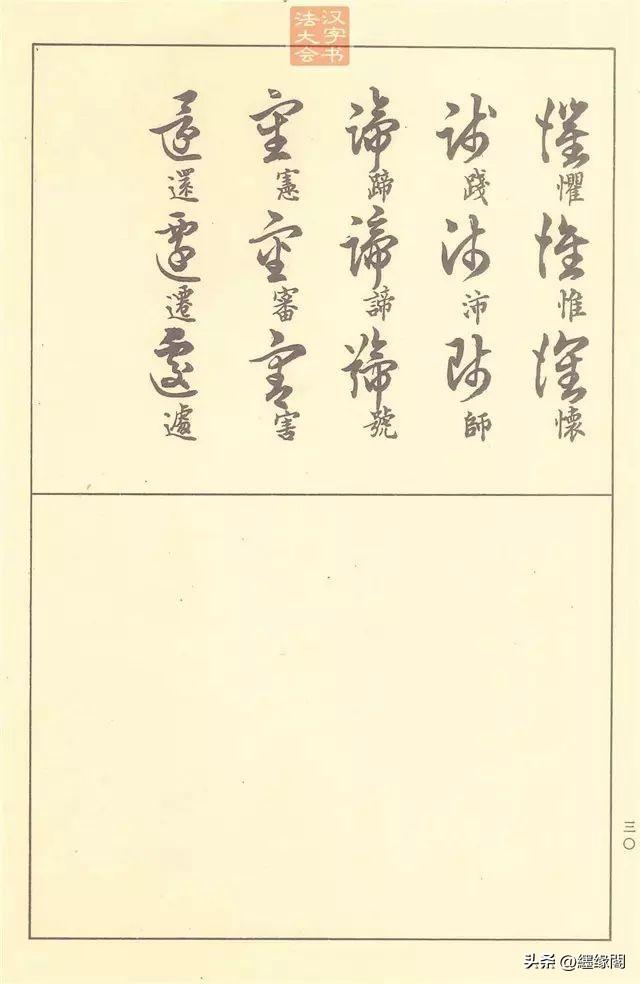 汉字书
法大会
懼
惟
懷
踐
沛
師
蹄
諦
號
憲
審
害
還
遷
遽
三〇
头条 @纒缘閣